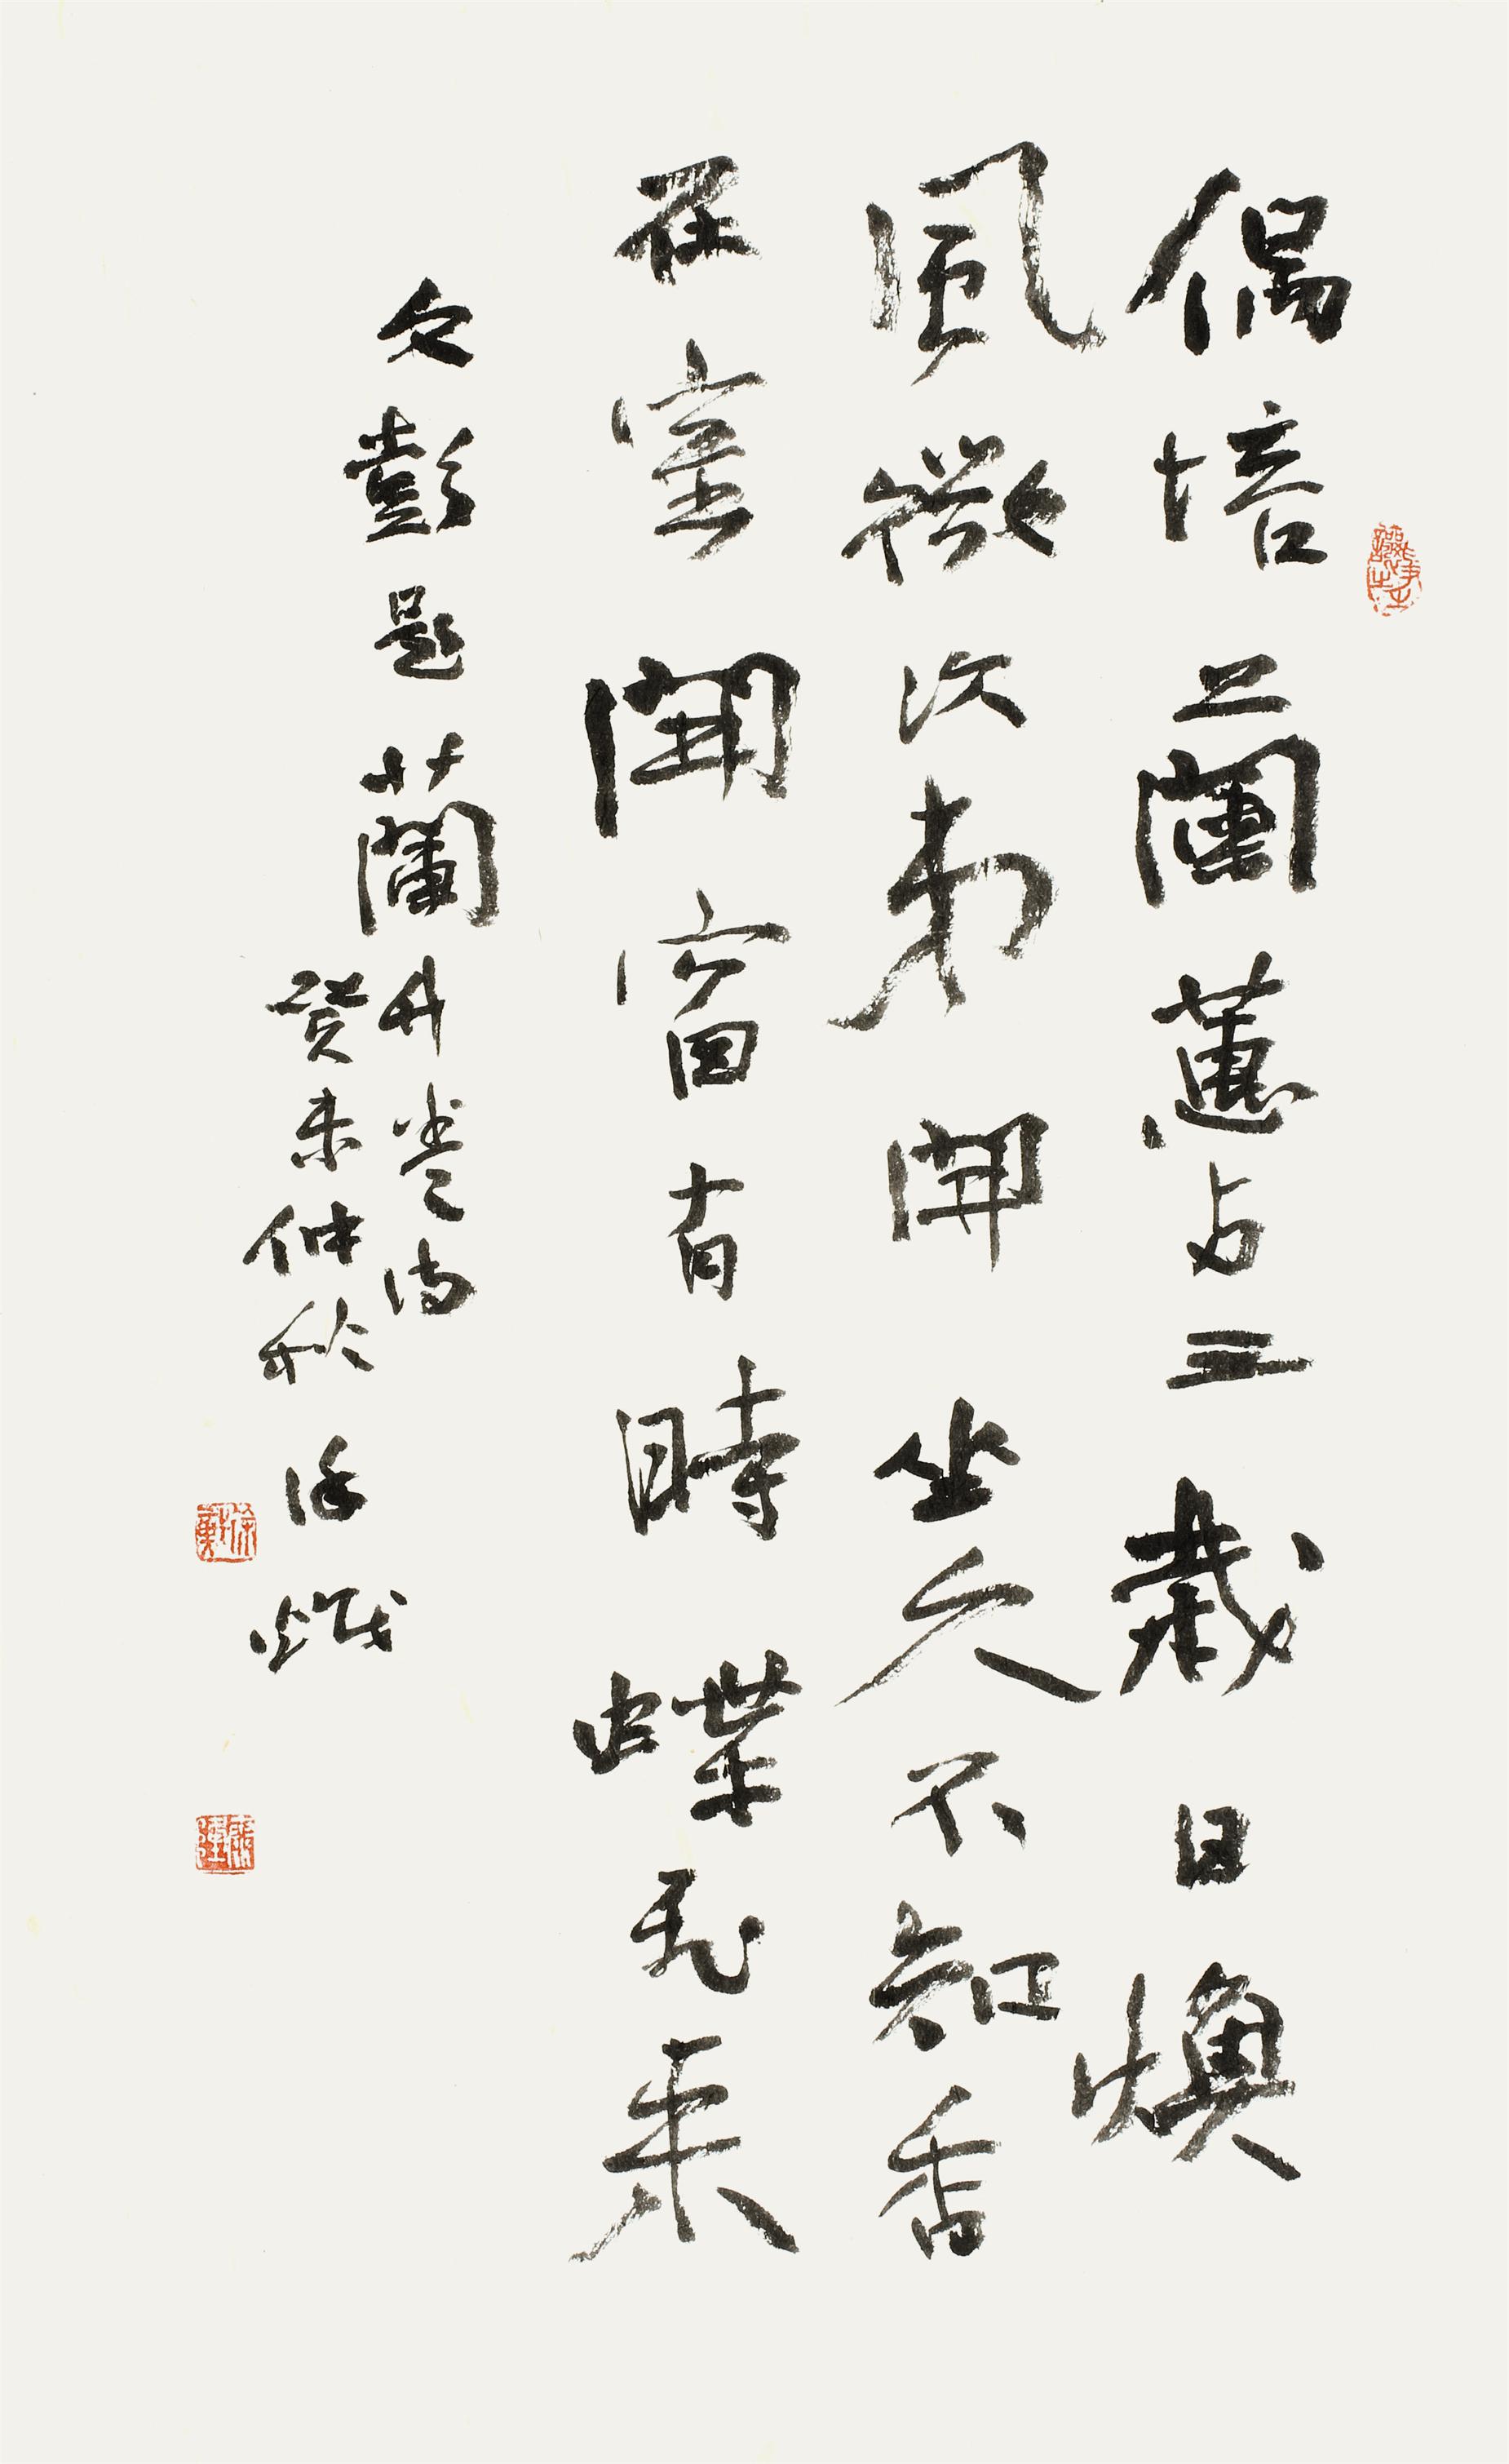 偶培蘭蕙三栽日煥
風微次第開坐久不知香
在室開窗有時蝶飛來
文彭題蘭竹卷詩
癸未仲秋徐熾